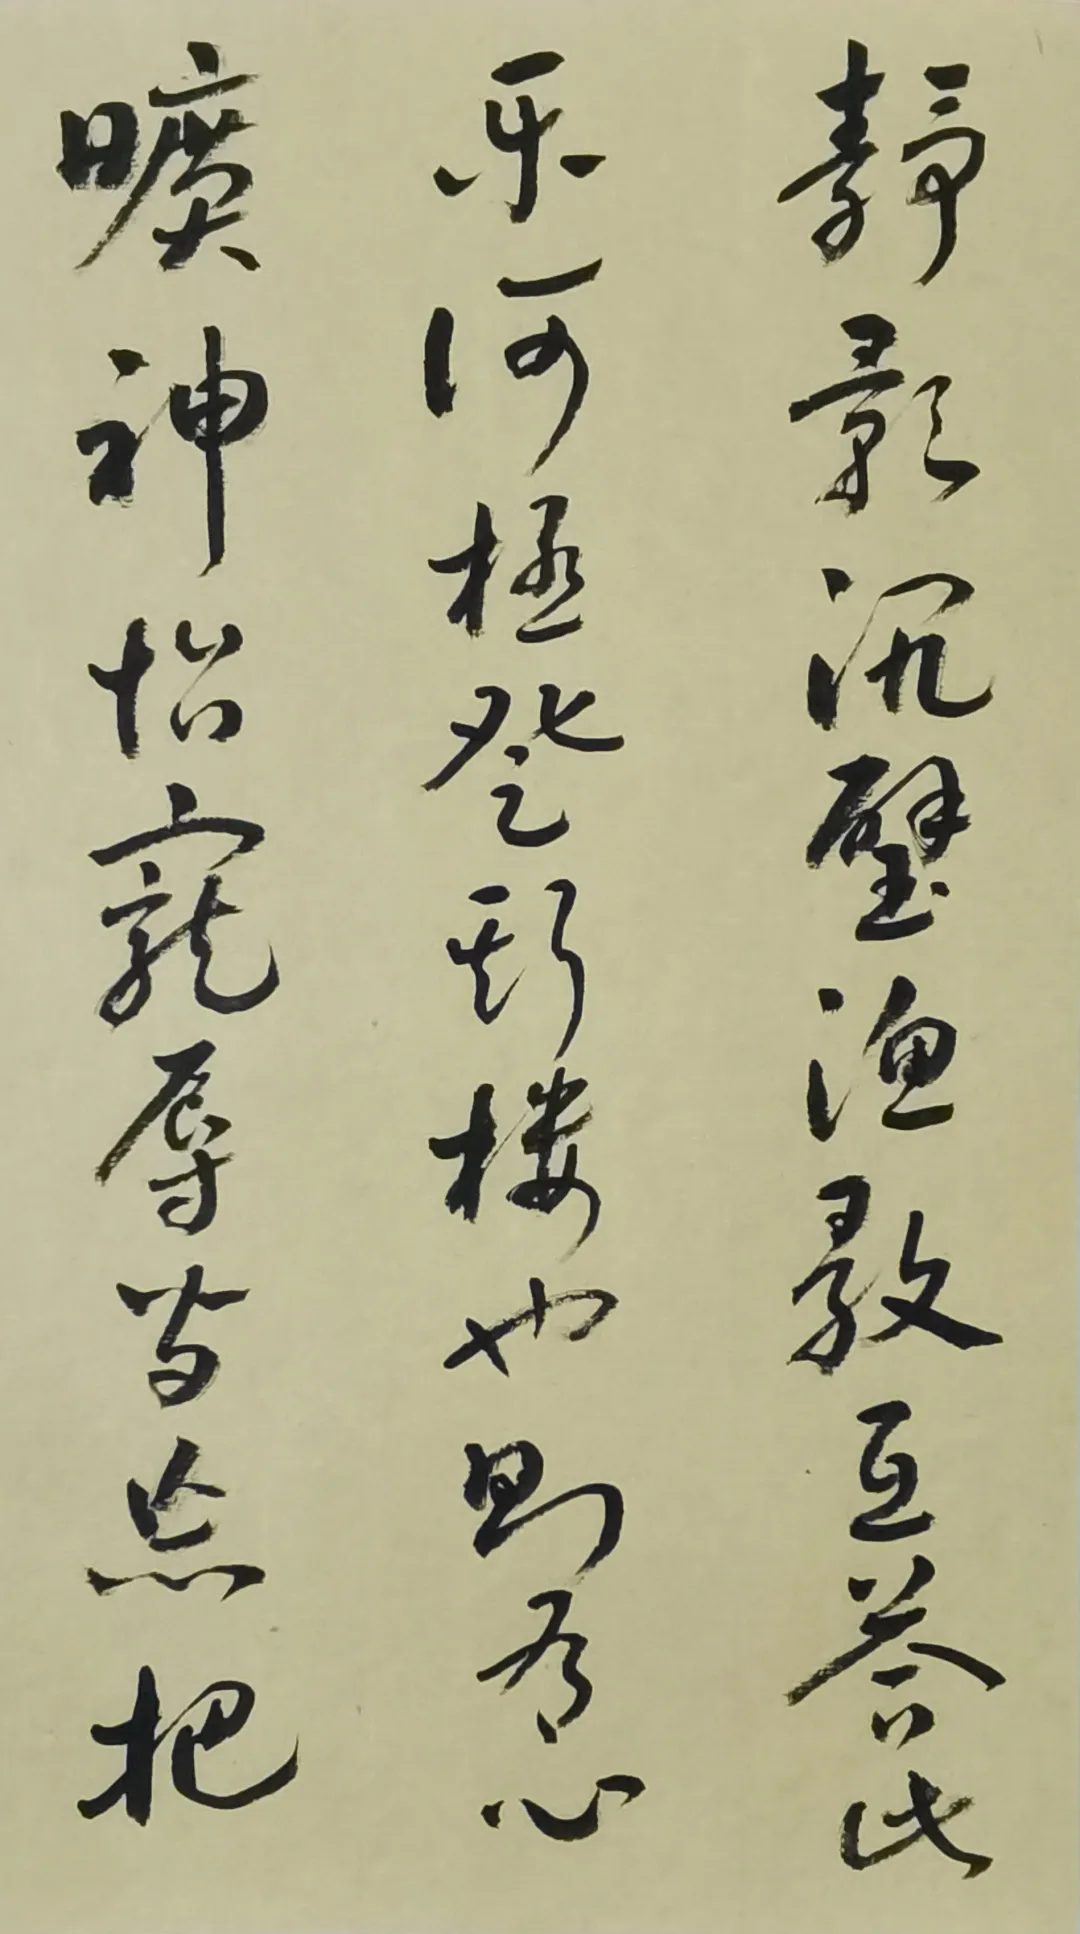 静影沉璧渔歌互答此
乐何极登斯楼也则有心
旷神怡宠辱皆忘把